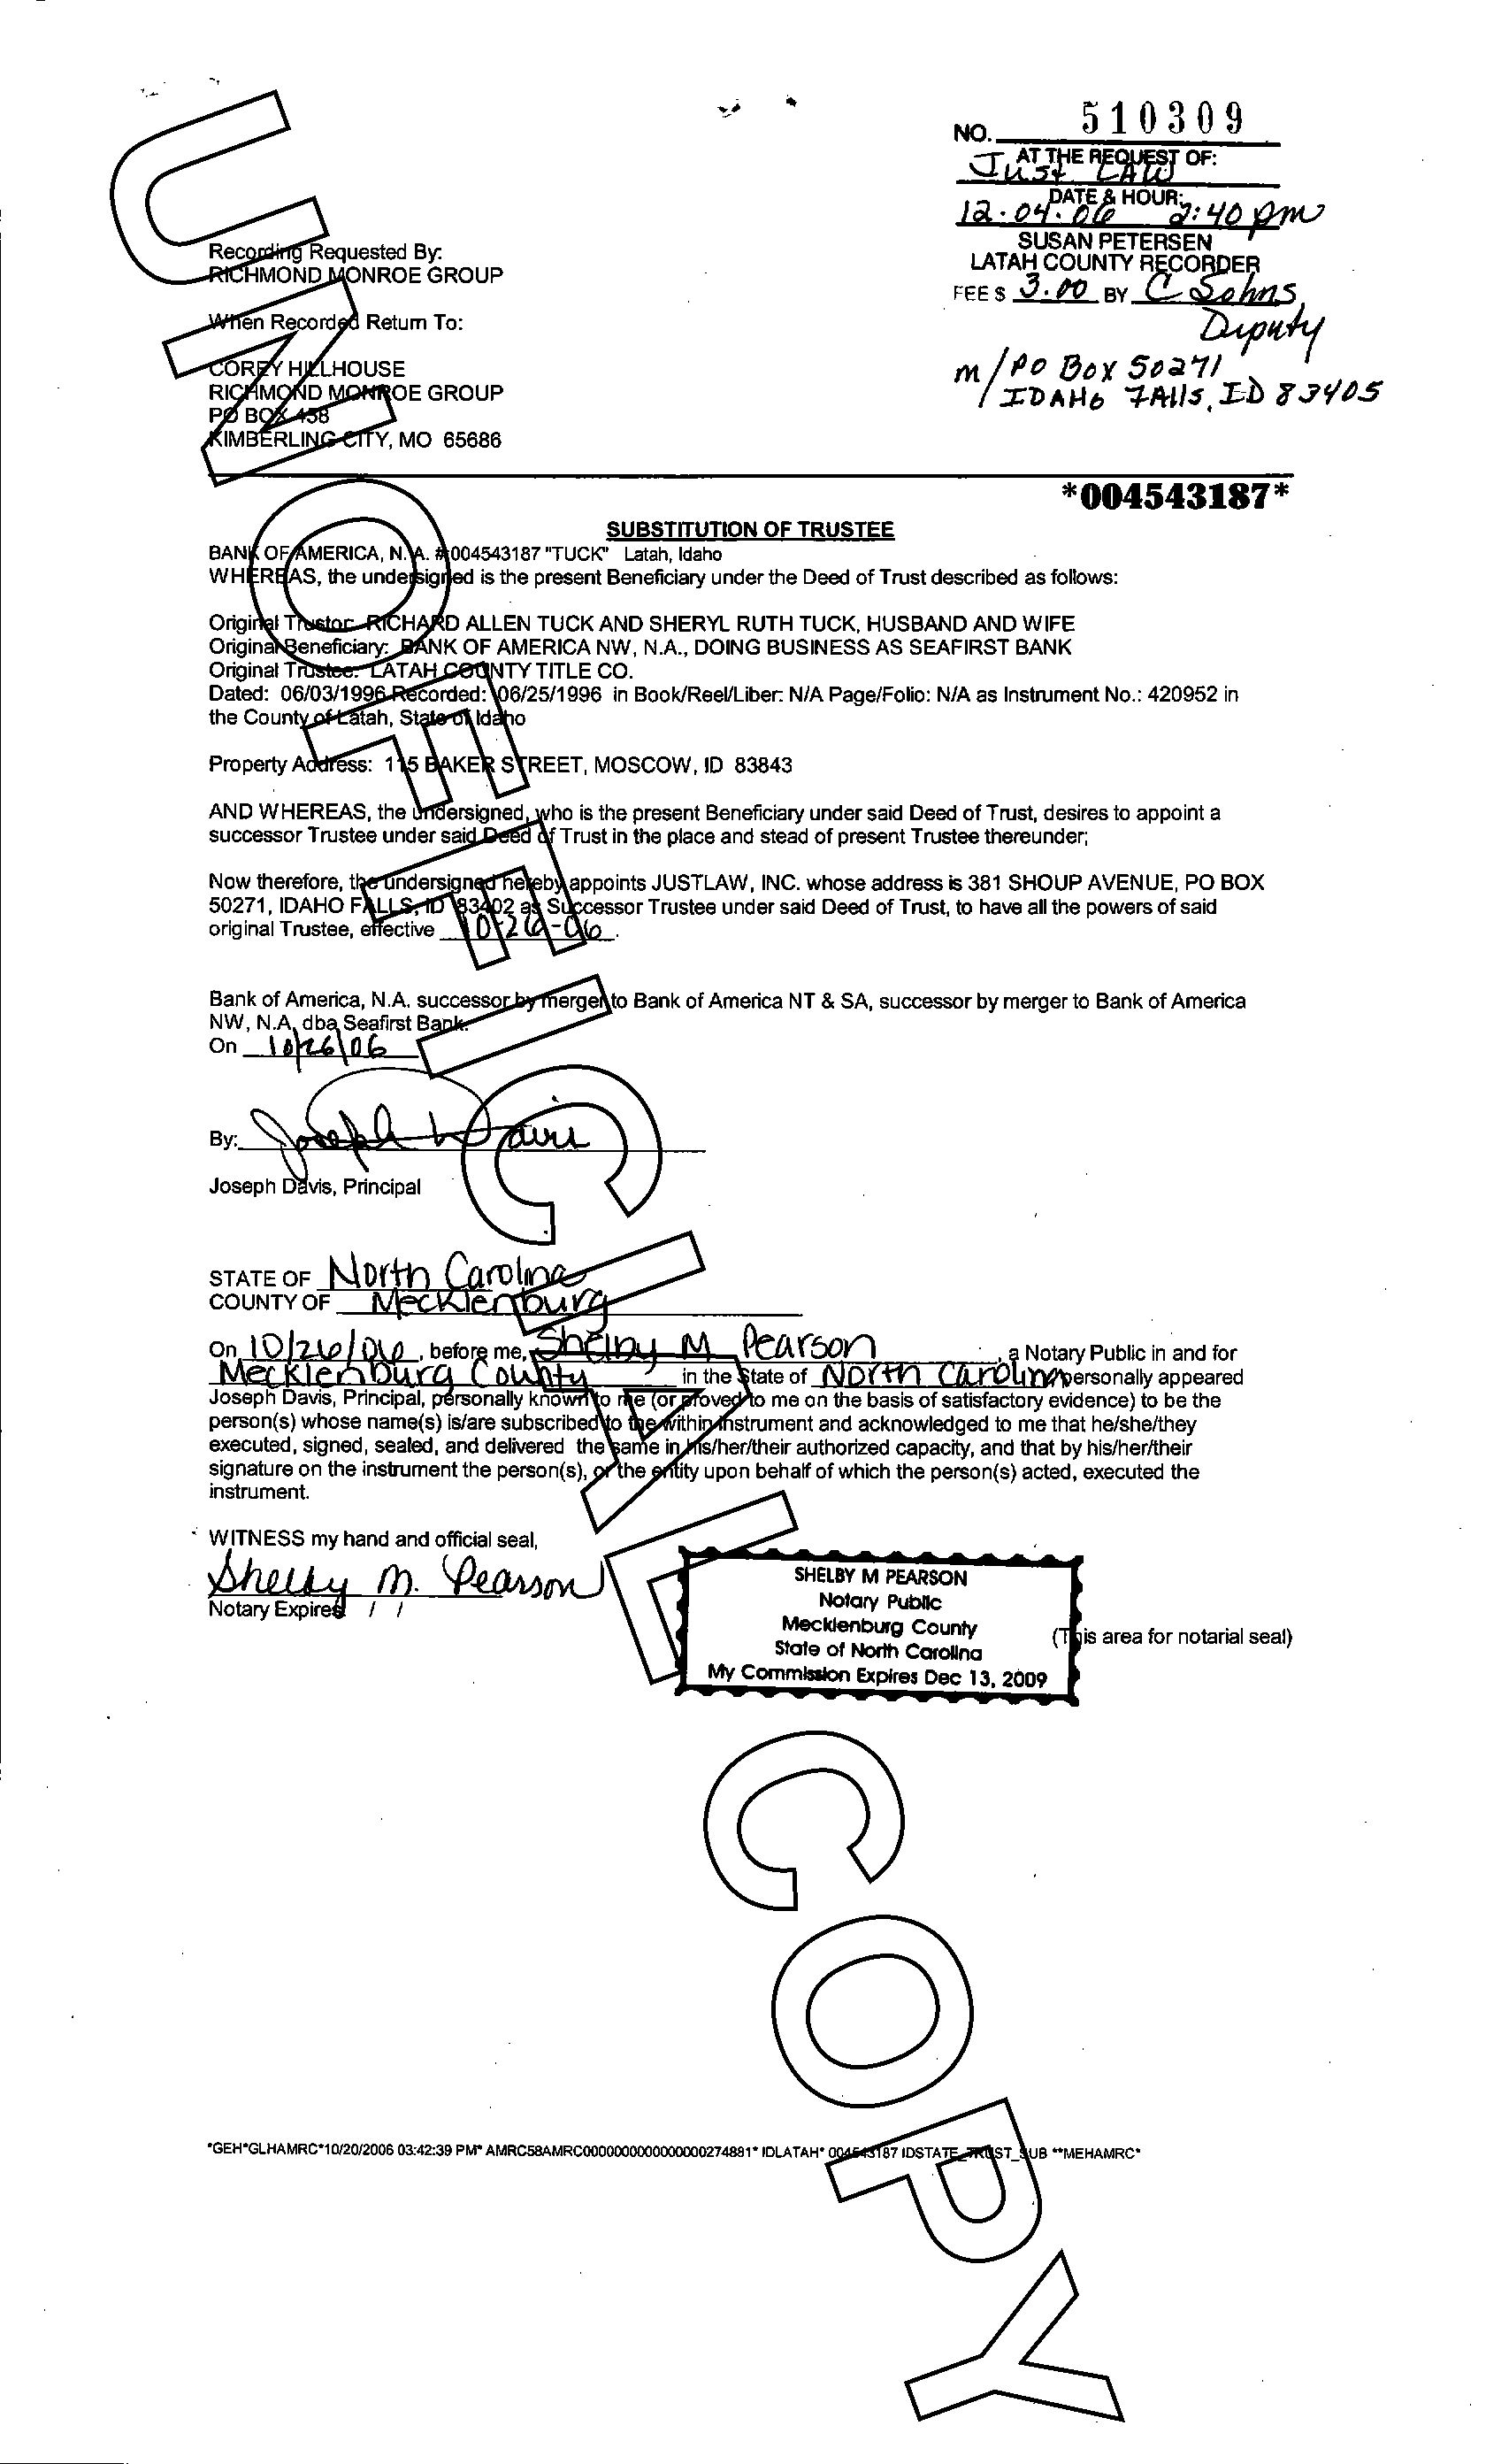 NO. 510309
AT THE REQUEST OF:
Just LAW
DATE & HOUR:
12.04.06 2:40 pm
SUSAN PETERSEN
LATAH COUNTY RECORDER
FEE $ 3.00 BY C Sohns
Deputy
m/PO Box 50271
IDAHO FAlls, ID 83405
Recording Requested By:
RICHMOND MONROE GROUP
When Recorded Return To:
COREY HILLHOUSE
RICHMOND MONROE GROUP
PO BOX 458
KIMBERLING CITY, MO 65686
*004543187*
SUBSTITUTION OF TRUSTEE
BANK OF AMERICA, N.A. #:004543187 "TUCK" Latah, Idaho
WHEREAS, the undersigned is the present Beneficiary under the Deed of Trust described as follows:
Original Trustor: RICHARD ALLEN TUCK AND SHERYL RUTH TUCK, HUSBAND AND WIFE
Original Beneficiary: BANK OF AMERICA NW, N.A., DOING BUSINESS AS SEAFIRST BANK
Original Trustee: LATAH COUNTY TITLE CO.
Dated: 06/03/1996 Recorded: 06/25/1996 in Book/Reel/Liber: N/A Page/Folio: N/A as Instrument No.: 420952 in
the County of Latah, State of Idaho
Property Address: 115 BAKER STREET, MOSCOW, ID 83843
AND WHEREAS, the undersigned, who is the present Beneficiary under said Deed of Trust, desires to appoint a
successor Trustee under said Deed of Trust in the place and stead of present Trustee thereunder;
Now therefore, the undersigned hereby appoints JUSTLAW, INC. whose address is 381 SHOUP AVENUE, PO BOX
50271, IDAHO FALLS, ID 83402 as Successor Trustee under said Deed of Trust, to have all the powers of said
original Trustee, effective 10-26-06.
Bank of America, N.A. successor by merger to Bank of America NT & SA, successor by merger to Bank of America
NW, N.A. dba Seafirst Bank.
On 10/26/06
By: Joseph W Davis
Joseph Davis, Principal
STATE OF North Carolina
COUNTY OF Mecklenburg
On 10/26/06, before me, Shelby M Pearson, a Notary Public in and for
Mecklenburg County in the State of North Carolina personally appeared
Joseph Davis, Principal, personally known to me (or proved to me on the basis of satisfactory evidence) to be the
person(s) whose name(s) is/are subscribed to the within instrument and acknowledged to me that he/she/they
executed, signed, sealed, and delivered the same in his/her/their authorized capacity, and that by his/her/their
signature on the instrument the person(s), or the entity upon behalf of which the person(s) acted, executed the
instrument.
WITNESS my hand and official seal,
Shelby M. Pearson
Notary Expires: / /
SHELBY M PEARSON
Notary Public
Mecklenburg County
State of North Carolina
My Commission Expires Dec 13, 2009
(This area for notarial seal)
*GEH*GLHAMRC*10/20/2006 03:42:39 PM* AMRC58AMRC0000000000000000274881* IDLATAH* 004543187 IDSTATE_TRUST_SUB **MEHAMRC*
UNOFFICIAL COPY